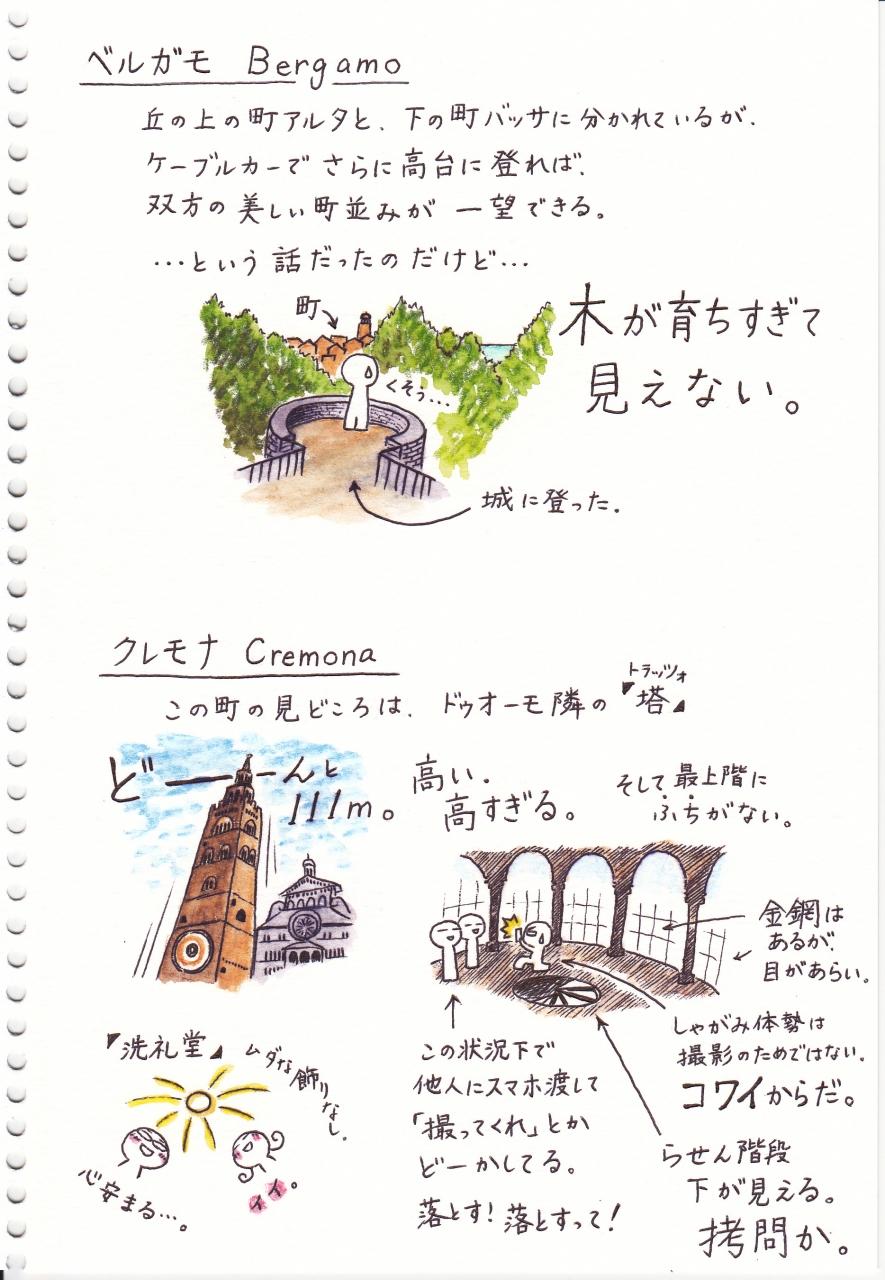 ベルガモ Bergamo
丘の上の町アルタと、下の町バッサに分かれているが、
ケーブルカーでさらに高台に登れば、
双方の美しい町並みが一望できる。
…という話だったのだけど…
町
くそぅ…
木が育ちすぎて
見えない。
城に登った。
クレモナ Cremona
トラッツォ
この町の見どころは、ドゥオーモ隣の〝塔〟
どーーーんと
111m。
高い。
高すぎる。
そして最上階に
ふちがない。
金網は
あるが、
目があらい。
しゃがみ体勢は
撮影のためではない。
コワイからだ。
この状況下で
他人にスマホ渡して
「撮ってくれ」とか
どーかしてる。
落とす!落とすって!
らせん階段
下が見える。
拷問か。
〝洗礼堂〟
ムダな飾りなし。
心安まる…。
イイ。